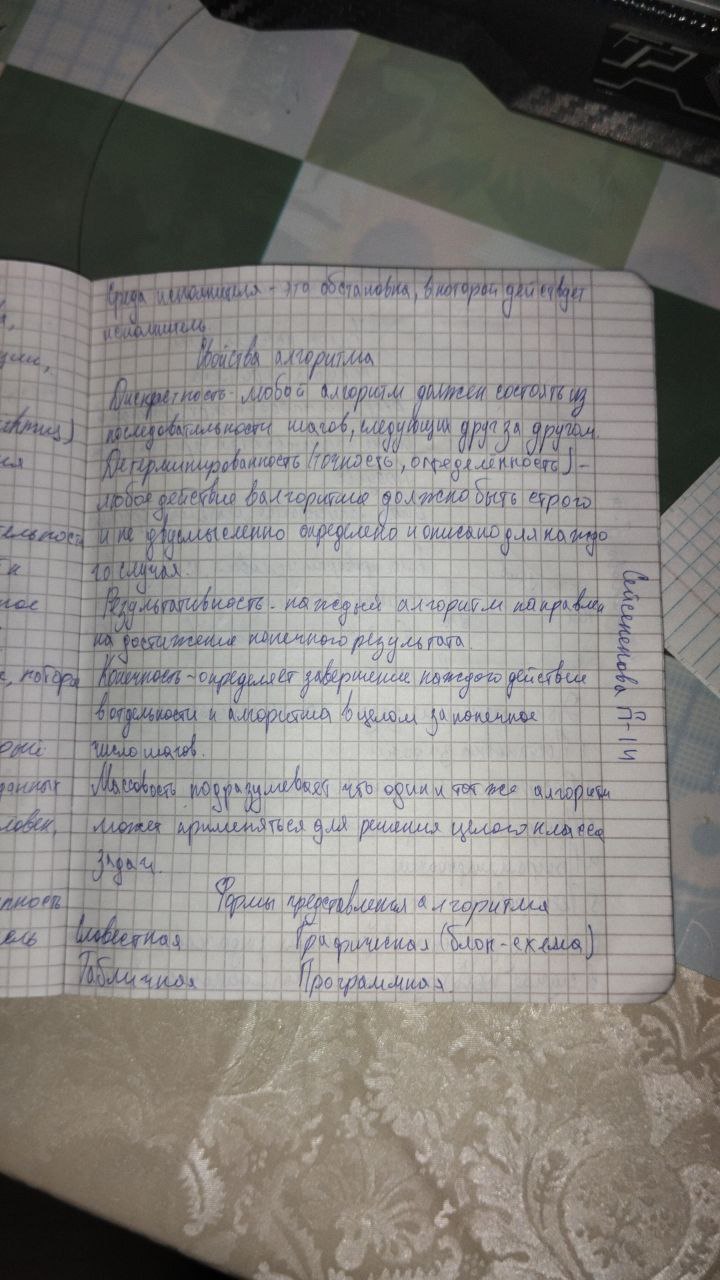 Среда исполнителя - это обстановка, в которой действует
исполнитель
Свойства алгоритма
Дискретность - любой алгоритм должен состоять из
последовательности шагов, следующих друг за другом.
Детерминированность (точность, определенность) -
любое действие в алгоритме должно быть строго
и не двусмысленно определено и описано для каждо
го случая.
Результативность - каждый алгоритм направлен
на достижение конечного результата.
Конечность - определяет завершение каждого действие
в отдельности и алгоритма в целом за конечное
число шагов.
Массовость подразумевает что один и тот же алгоритм
может применяться для решения целого класса
задач.
Формы представления алгоритма
Словестная Графическая (блок-схема)
Табличная Программная.
Сейсекенова П-14
тельность
ное
к, котора
данных
ловек,